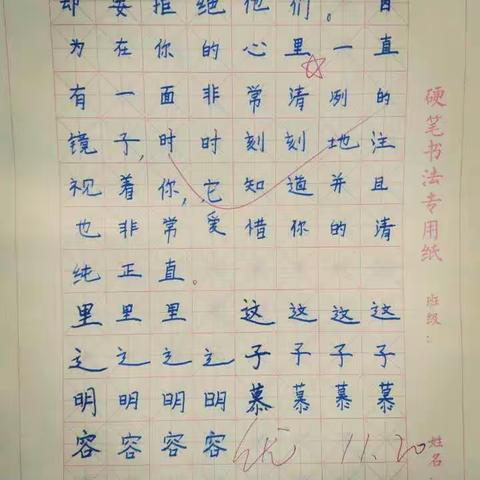 却要拒绝他们。因
为在你的心里一直
有一面非常清冽的
镜子,时时刻刻地注
视着你,它知道并且
也非常爱惜你的清
纯正直。
里里里 这这这这
辶辶辶辶子子子子
明明明明慕慕慕慕
容容容容优 11.20
硬笔书法专用纸 班级:
姓名